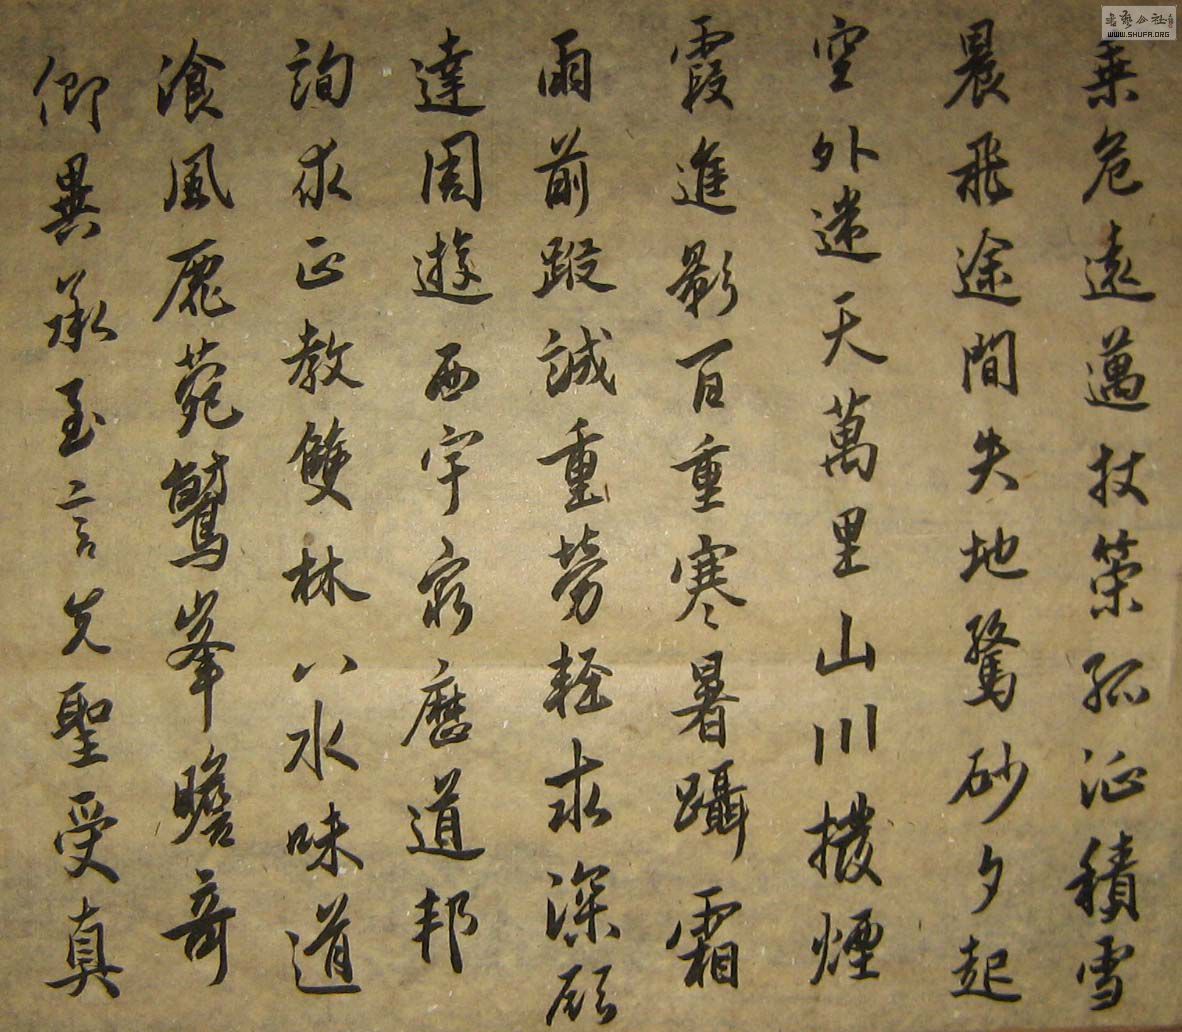 乗危遠邁杖策孤征積雪
晨飛途間失地驚砂夕起
空外迷天萬里山川撥煙
霞進影百重寒暑躡霜
雨前蹤誠重勞輕求深願
達周遊西宇窮歷道邦
詢求正教雙林八水味道
湌風鹿菀鷲峯瞻奇
仰異承至言先聖受真
书藝公社
WWW.SHUFA.ORG